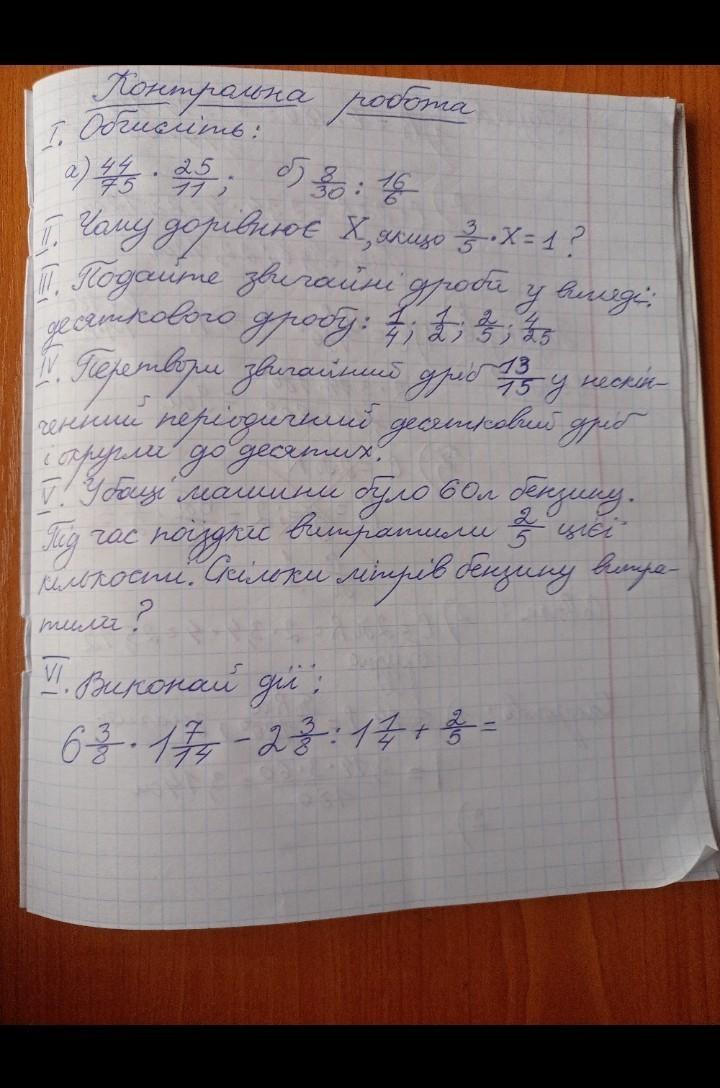 Контральна робота
I. Обчисліть:
а) 44/75 · 25/11; б) 8/30 : 16/6
II. Чому дорівнює X, якщо 3/5 · X = 1?
III. Подайте звичайні дроби у вигляді:
десяткового дробу: 1/4; 1/2; 2/5; 4/25
IV. Перетвори звичайний дріб 13/15 у нескін-
ченний періодичний десятковий дріб
і округли до десятих.
V. У баці машини було 60л бензину.
Під час поїздки витратили 2/5 цієї
кількости. Скільки літрів бензину витра-
тили?
VI. Виконай дії:
6 3/8 · 1 7/14 - 2 3/8 : 1 1/4 + 2/5 =